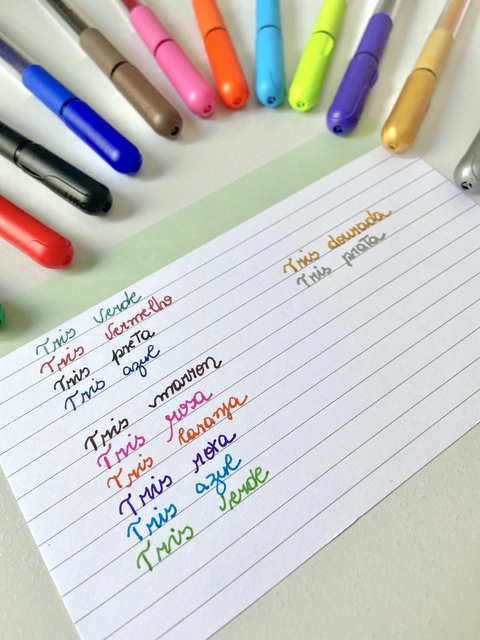 Tris verde
Tris vermelho
Tris preta
Tris azul
Tris marron
Tris rosa
Tris laranja
Tris roxa
Tris azul
Tris verde
Tris dourada
Tris prata